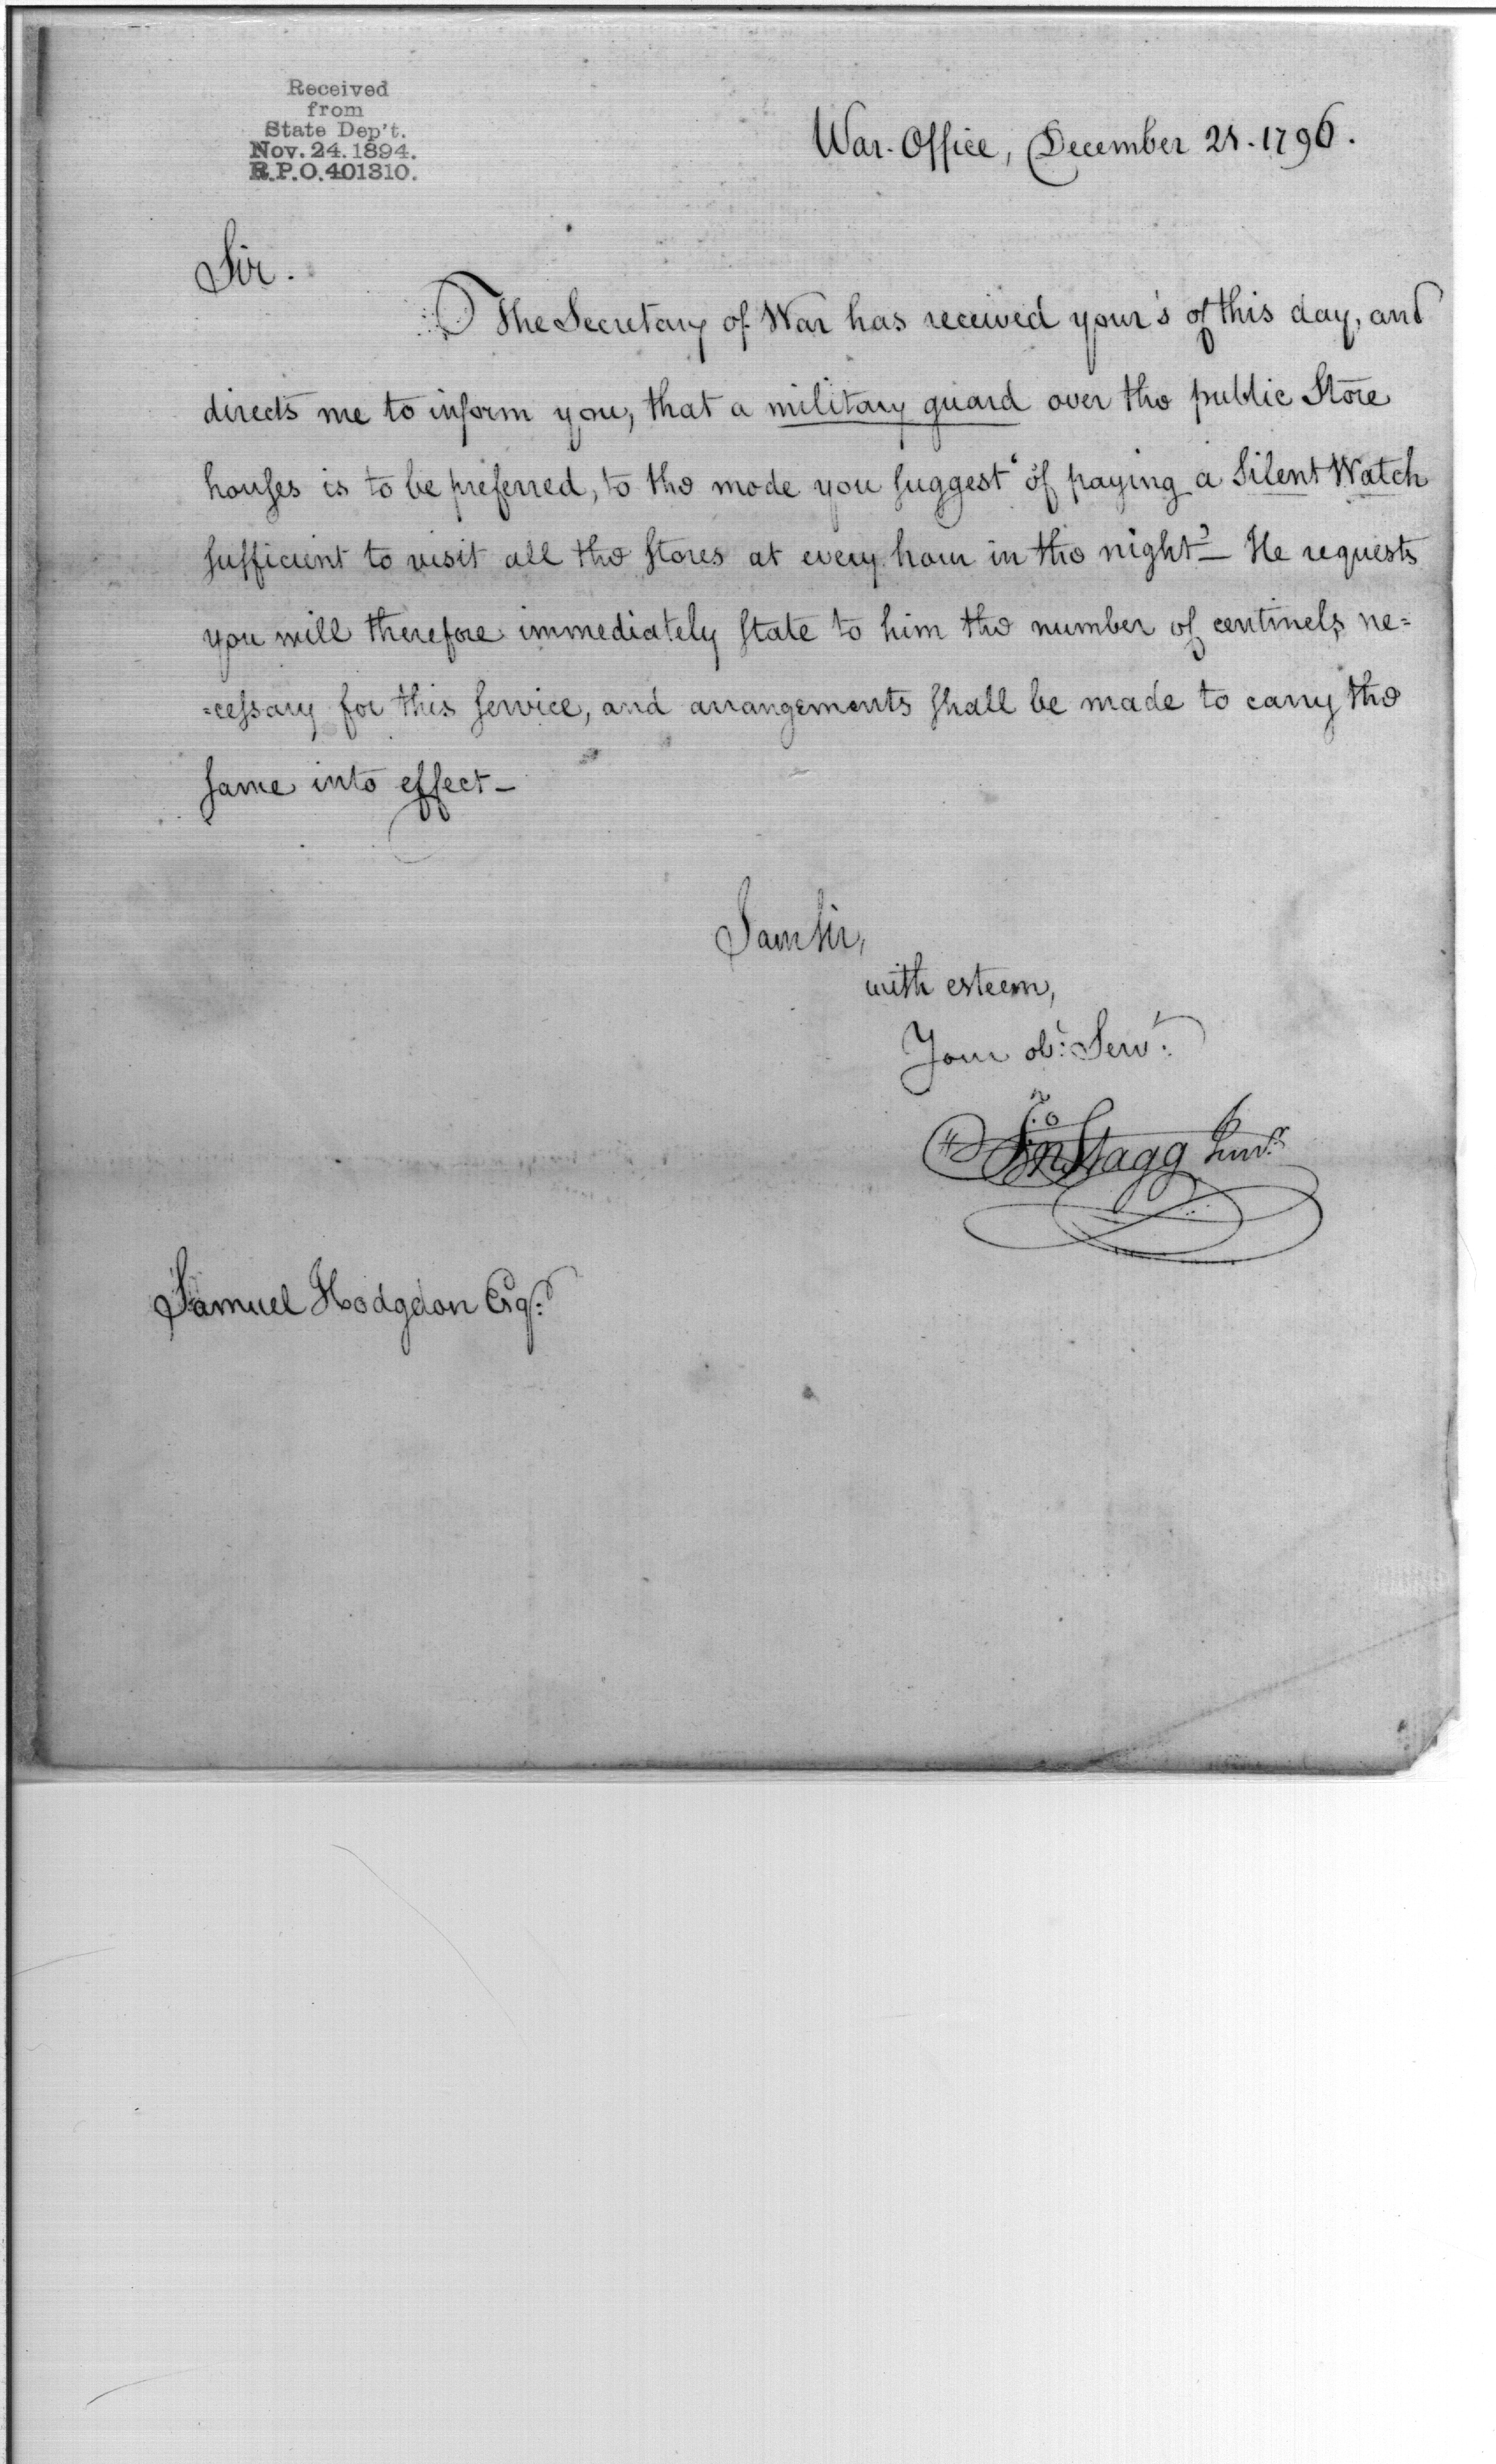 Received
from
State Dep't.
Nov. 24. 1894.
R.P.O. 401310.
War-Office, December 28. 1796.
Sir.
The Secretary of War has received your's of this day, and
directs me to inform you, that a military guard over the public Store
houses is to be preferred, to the mode you suggest "of paying a Silent Watch
sufficient to visit all the stores at every hour in the night" — He requests
you will therefore immediately state to him the number of centinels ne=
=cessary for this service, and arrangements shall be made to carry the
same into effect —
I am Sir,
with esteem,
Your obt: Servt:
Jno Stagg Junr.
Samuel Hodgdon Esqr.